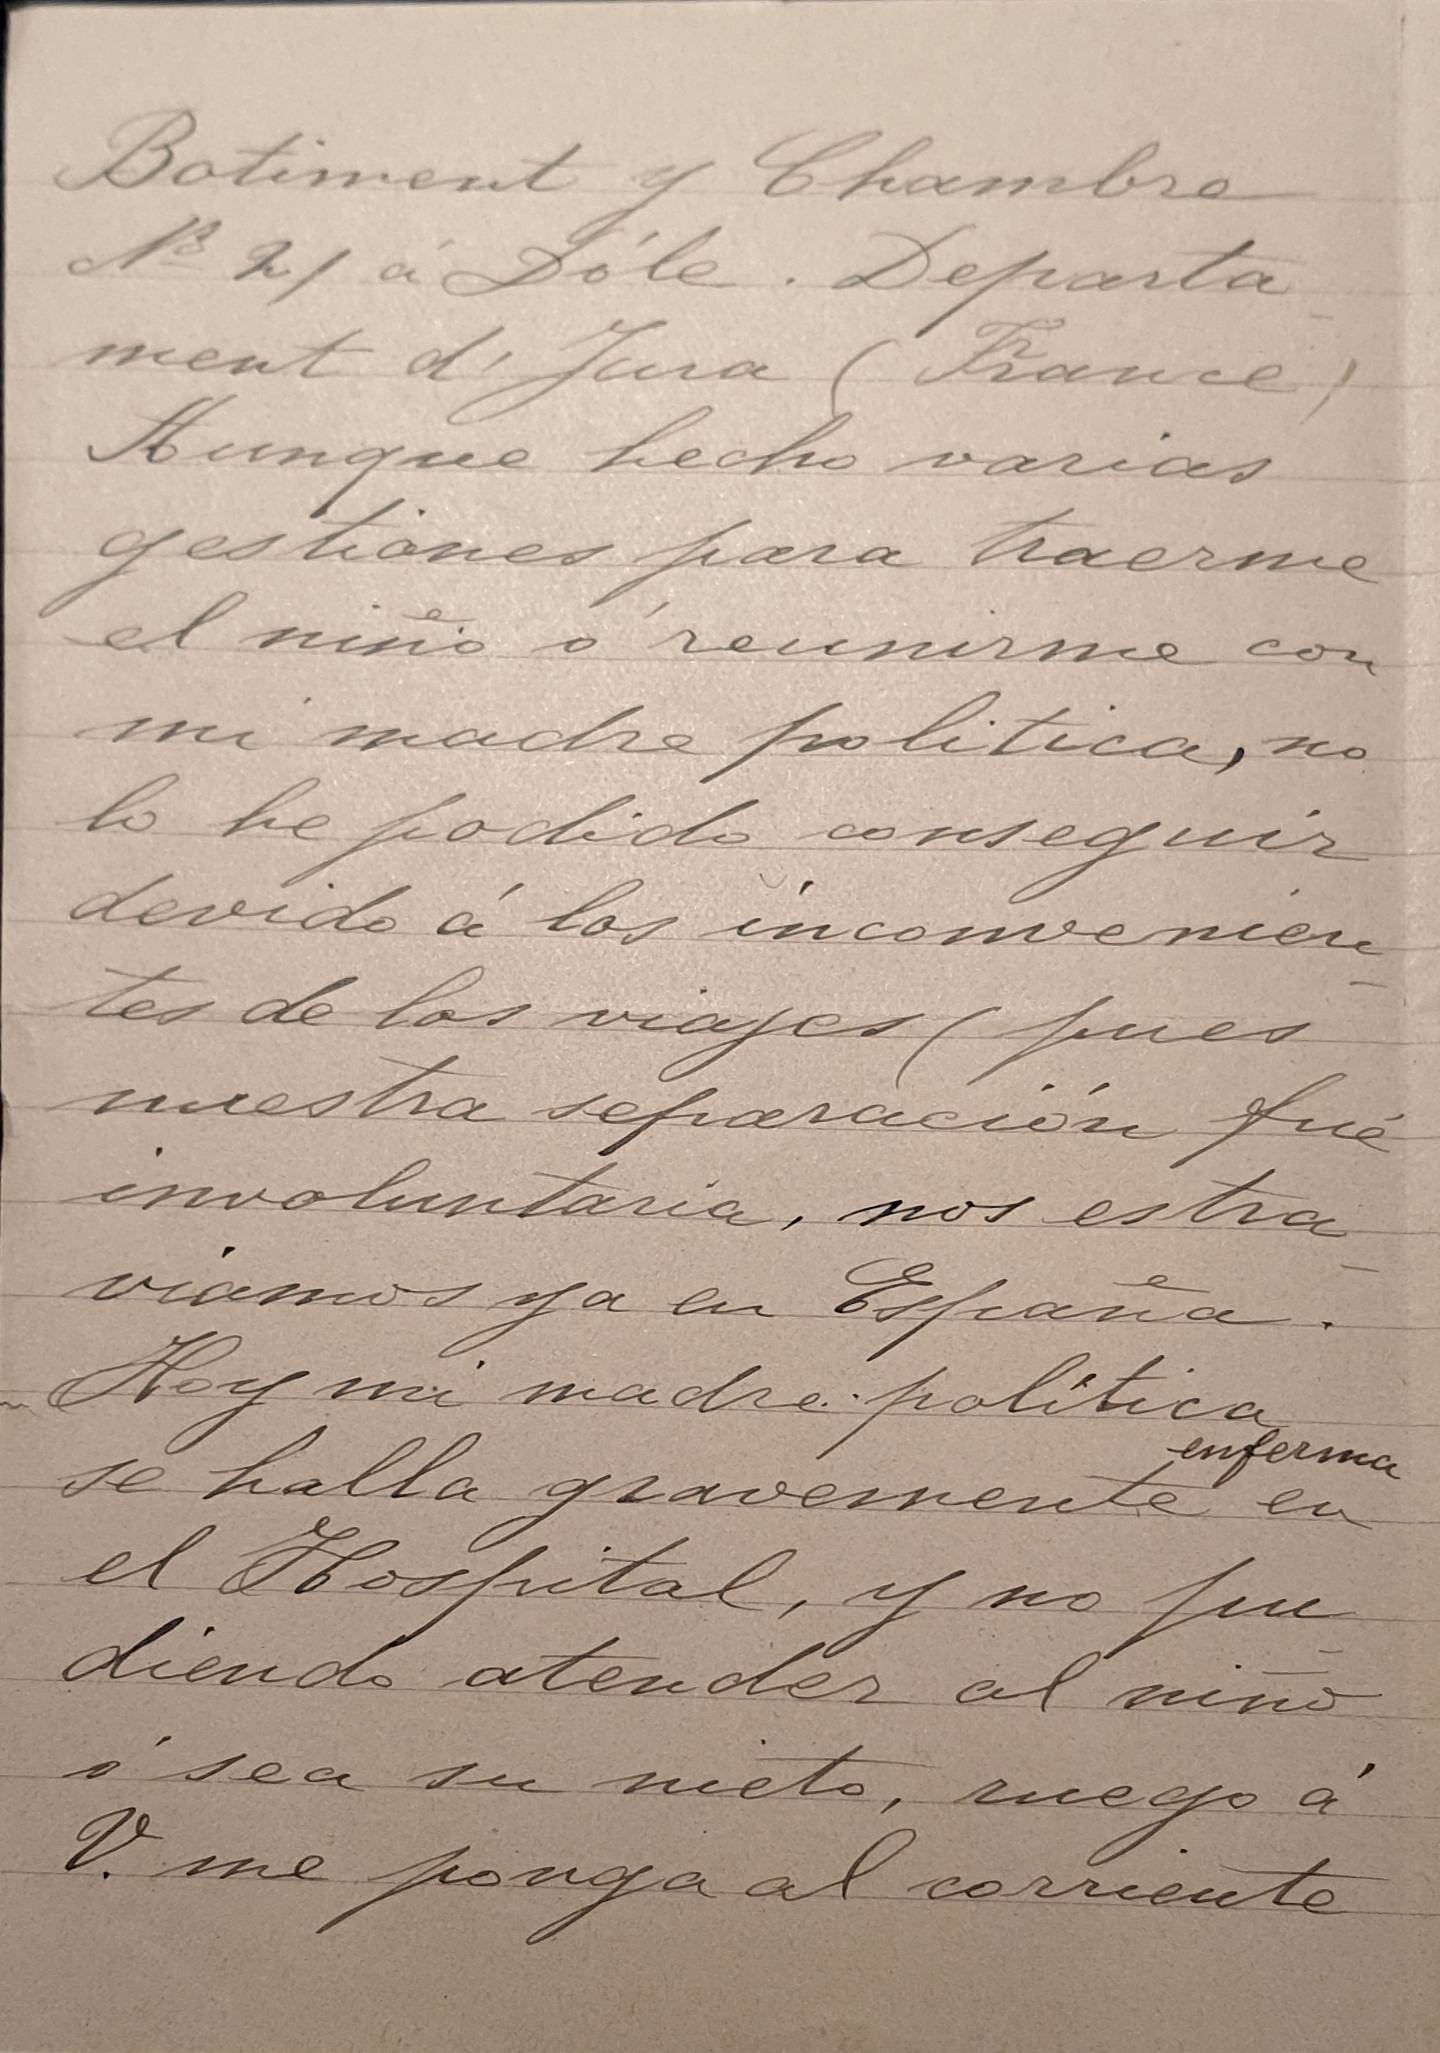 Batiment y Chambre
Nº 21 á Dóle. Departa-
ment d' Jura (France)
Aunque hecho varias
gestiones para traerme
el niño o' reunirme con
mi madre politica, no
lo he podido conseguir
devido á los inconvenien-
tes de los viajes (pues
nuestra separación fué
involuntaria, nos estra-
viamos ya en España.
Hoy mi madre politica
se halla gravemente enferma en
el Hospital, y no pu-
diendo atender al niño
ó sea su nieto, ruego á
V. me ponga al corriente